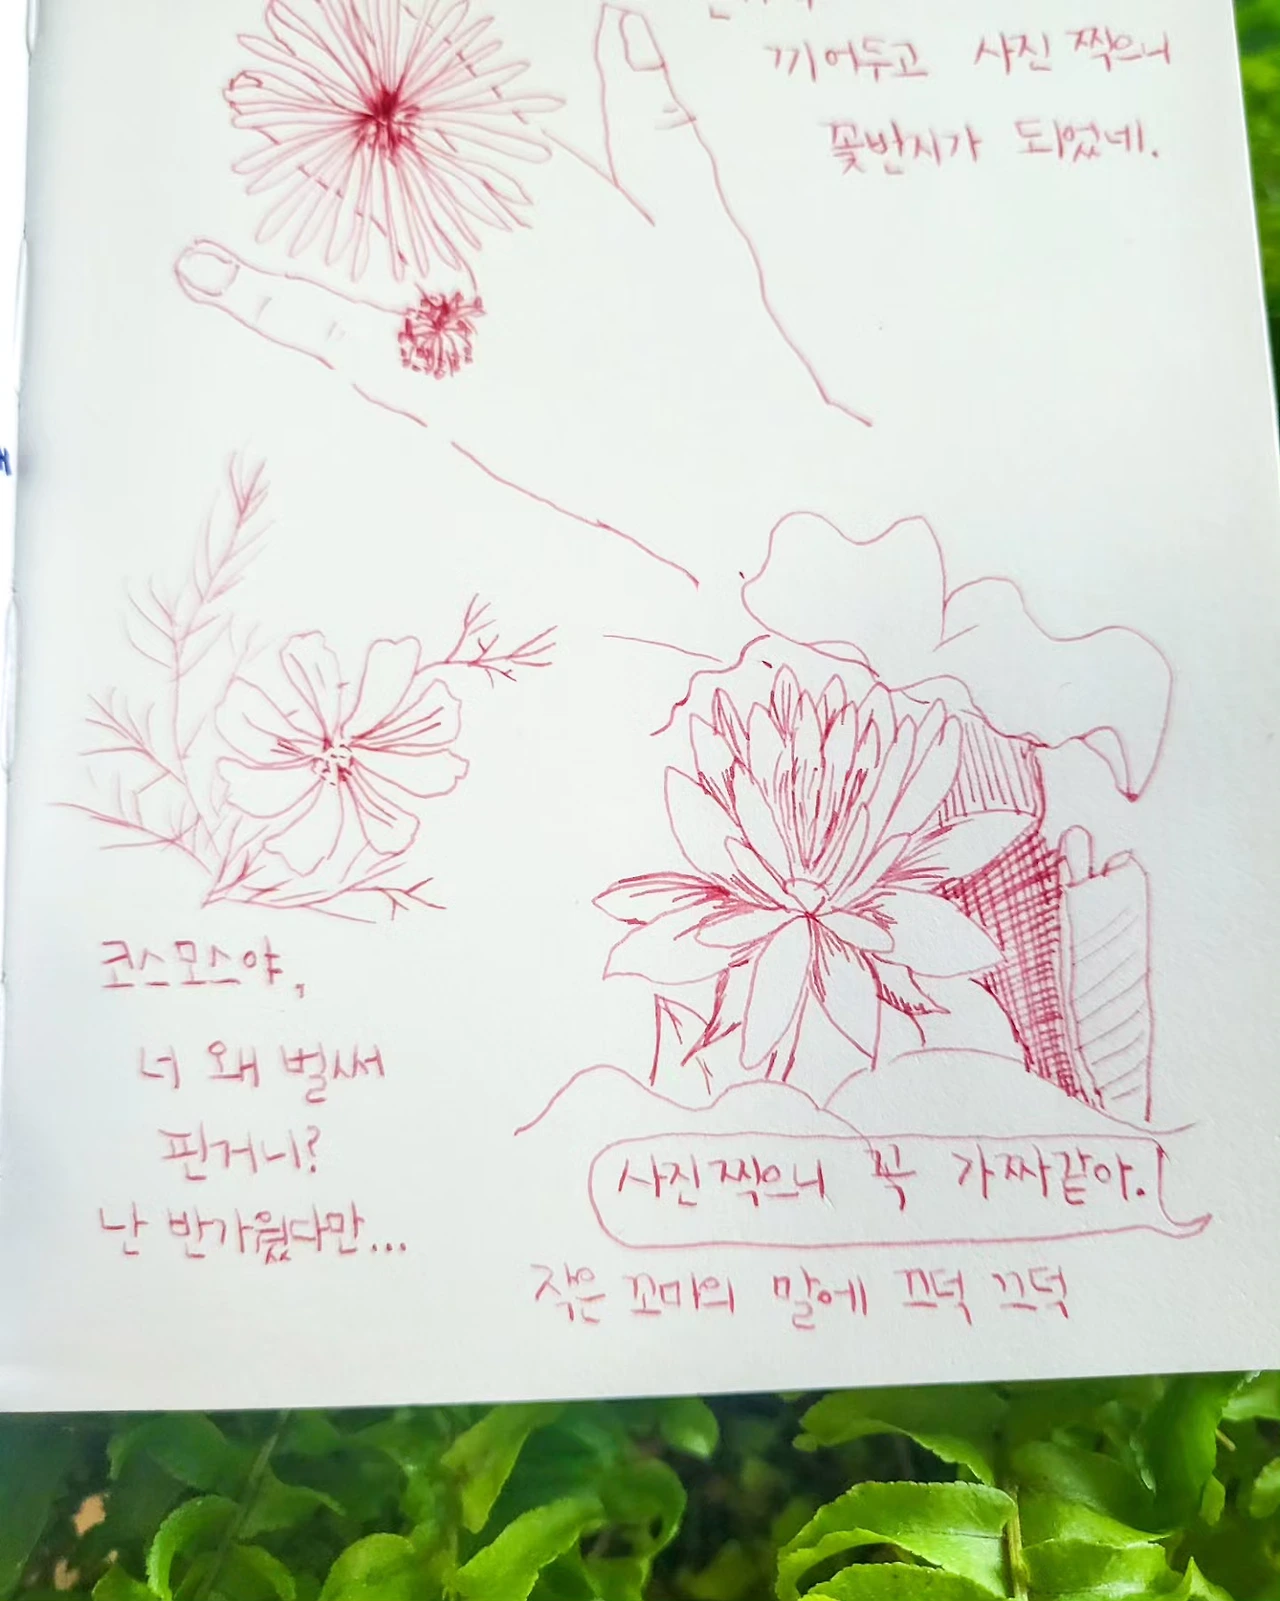 끼어두고 사진 찍으니
꽃반지가 되었네.
코스모스야,
너 왜 벌써
핀거니?
난 반가웠다만...
사진 찍으니 꼭 가짜같아.
작은 꼬마의 말에 끄덕 끄덕